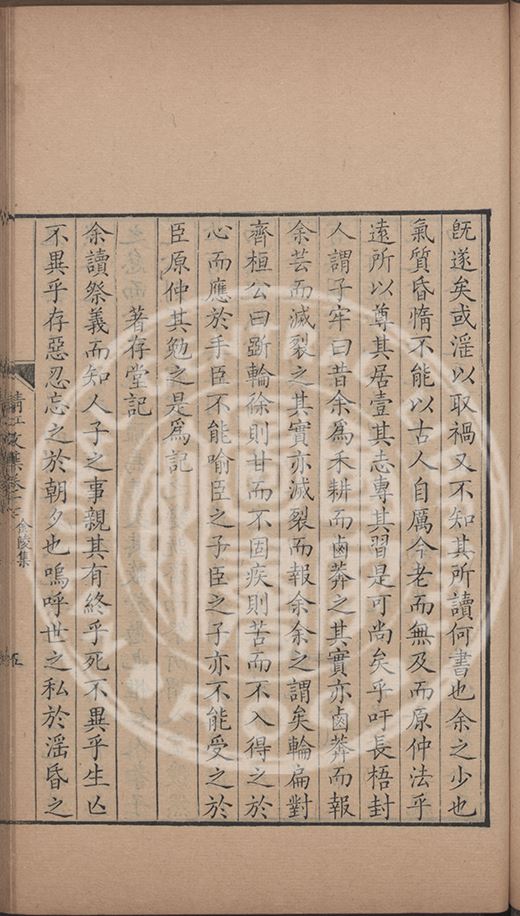 既遂矣或淫以取禍又不知其所讀何書也余之少也
氣質昏惰不能以古人自厲今老而無及而原仲法乎
遠所以尊其居壹其志專其習是可尚矣乎吁長梧封
人謂子牢曰昔余爲禾耕而鹵莽之其實亦鹵莽而報
余芸而滅裂之其實亦滅裂而報余余之謂矣輪扁對
齊桓公曰斲輪徐則甘而不固疾則苦而不入得之於
心而應於手臣不能喻臣之子臣之子亦不能受之於
臣原仲其勉之是爲記
著存堂記
余讀祭義而知人子之事親其有終乎死不異乎生亾
不異乎存惡忍忘之於朝夕也嗚呼世之私於滛昏之
清江文集卷二
金陵集